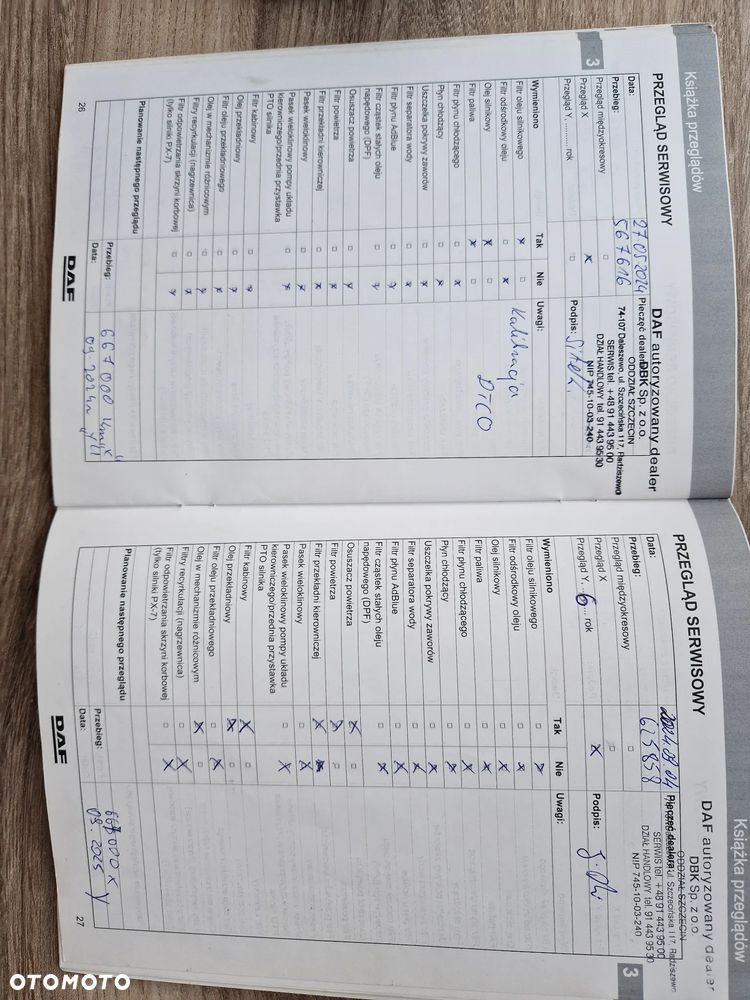 Książka przeglądów
PRZEGLĄD SERWISOWY
DAF autoryzowany dealer
Data:
27.05.2024
Pieczęć dealera:
DBK Sp. z o.o.
ODDZIAŁ SZCZECIN
74-107 Daleszewo, ul. Szczecińska 117, Radziszewo
SERWIS tel. +48 91 443 95 00
DZIAŁ HANDLOWY tel. 91 443 95 30
NIP 745-10-03-240
Przebieg:
567616
Przegląd międzyokresowy
Przegląd X
x
Przegląd Y, ......... rok
Podpis:
3
Wymieniono
Tak
Nie
Uwagi:
Filtr oleju silnikowego
x
Kalibracja
DTCO
Filtr odśrodkowy oleju
x
Olej silnikowy
x
Filtr paliwa
x
Filtr płynu chłodzącego
x
Płyn chłodzący
x
Uszczelka pokrywy zaworów
x
Filtr separatora wody
x
Filtr płynu AdBlue
x
Filtr cząstek stałych oleju
napędowego (DPF)
x
Osuszacz powietrza
x
Filtr powietrza
x
Filtr przekładni kierowniczej
x
Pasek wieloklinowy
x
Pasek wieloklinowy pompy układu
kierowniczego/przednia przystawka
PTO silnika
x
Filtr kabinowy
x
Olej przekładniowy
x
Filtr oleju przekładniowego
x
Olej w mechanizmie różnicowym
x
Filtry recyrkulacji (nagrzewnica)
x
Filtr odpowietrzania skrzyni korbowej
(tylko silniki PX-7)
x
Planowanie następnego przeglądu
Przebieg:
667 000 km
Data:
09.2024
26
DAF
Książka przeglądów
PRZEGLĄD SERWISOWY
DAF autoryzowany dealer
DBK Sp. z o.o.
ODDZIAŁ SZCZECIN
Data:
Pieczęć dealera:
ul. Szczecińska 117, Radziszewo
SERWIS tel. +48 91 443 95 00
DZIAŁ HANDLOWY tel. 91 443 95 30
NIP 745-10-03-240
Przebieg:
625858
Przegląd międzyokresowy
Przegląd X
x
Przegląd Y, 6 rok
Podpis:
3
Wymieniono
Tak
Nie
Uwagi:
Filtr oleju silnikowego
x
Filtr odśrodkowy oleju
x
Olej silnikowy
x
Filtr paliwa
x
Filtr płynu chłodzącego
x
Płyn chłodzący
x
Uszczelka pokrywy zaworów
x
Filtr separatora wody
x
Filtr płynu AdBlue
x
Filtr cząstek stałych oleju
napędowego (DPF)
x
Osuszacz powietrza
x
Filtr powietrza
x
Filtr przekładni kierowniczej
x
Pasek wieloklinowy
x
Pasek wieloklinowy pompy układu
kierowniczego/przednia przystawka
PTO silnika
x
Filtr kabinowy
x
Olej przekładniowy
x
Filtr oleju przekładniowego
x
Olej w mechanizmie różnicowym
x
Filtry recyrkulacji (nagrzewnica)
x
Filtr odpowietrzania skrzyni korbowej
(tylko silniki PX-7)
x
Planowanie następnego przeglądu
Przebieg:
Data:
09.2025
DAF
27
OTOMOTO